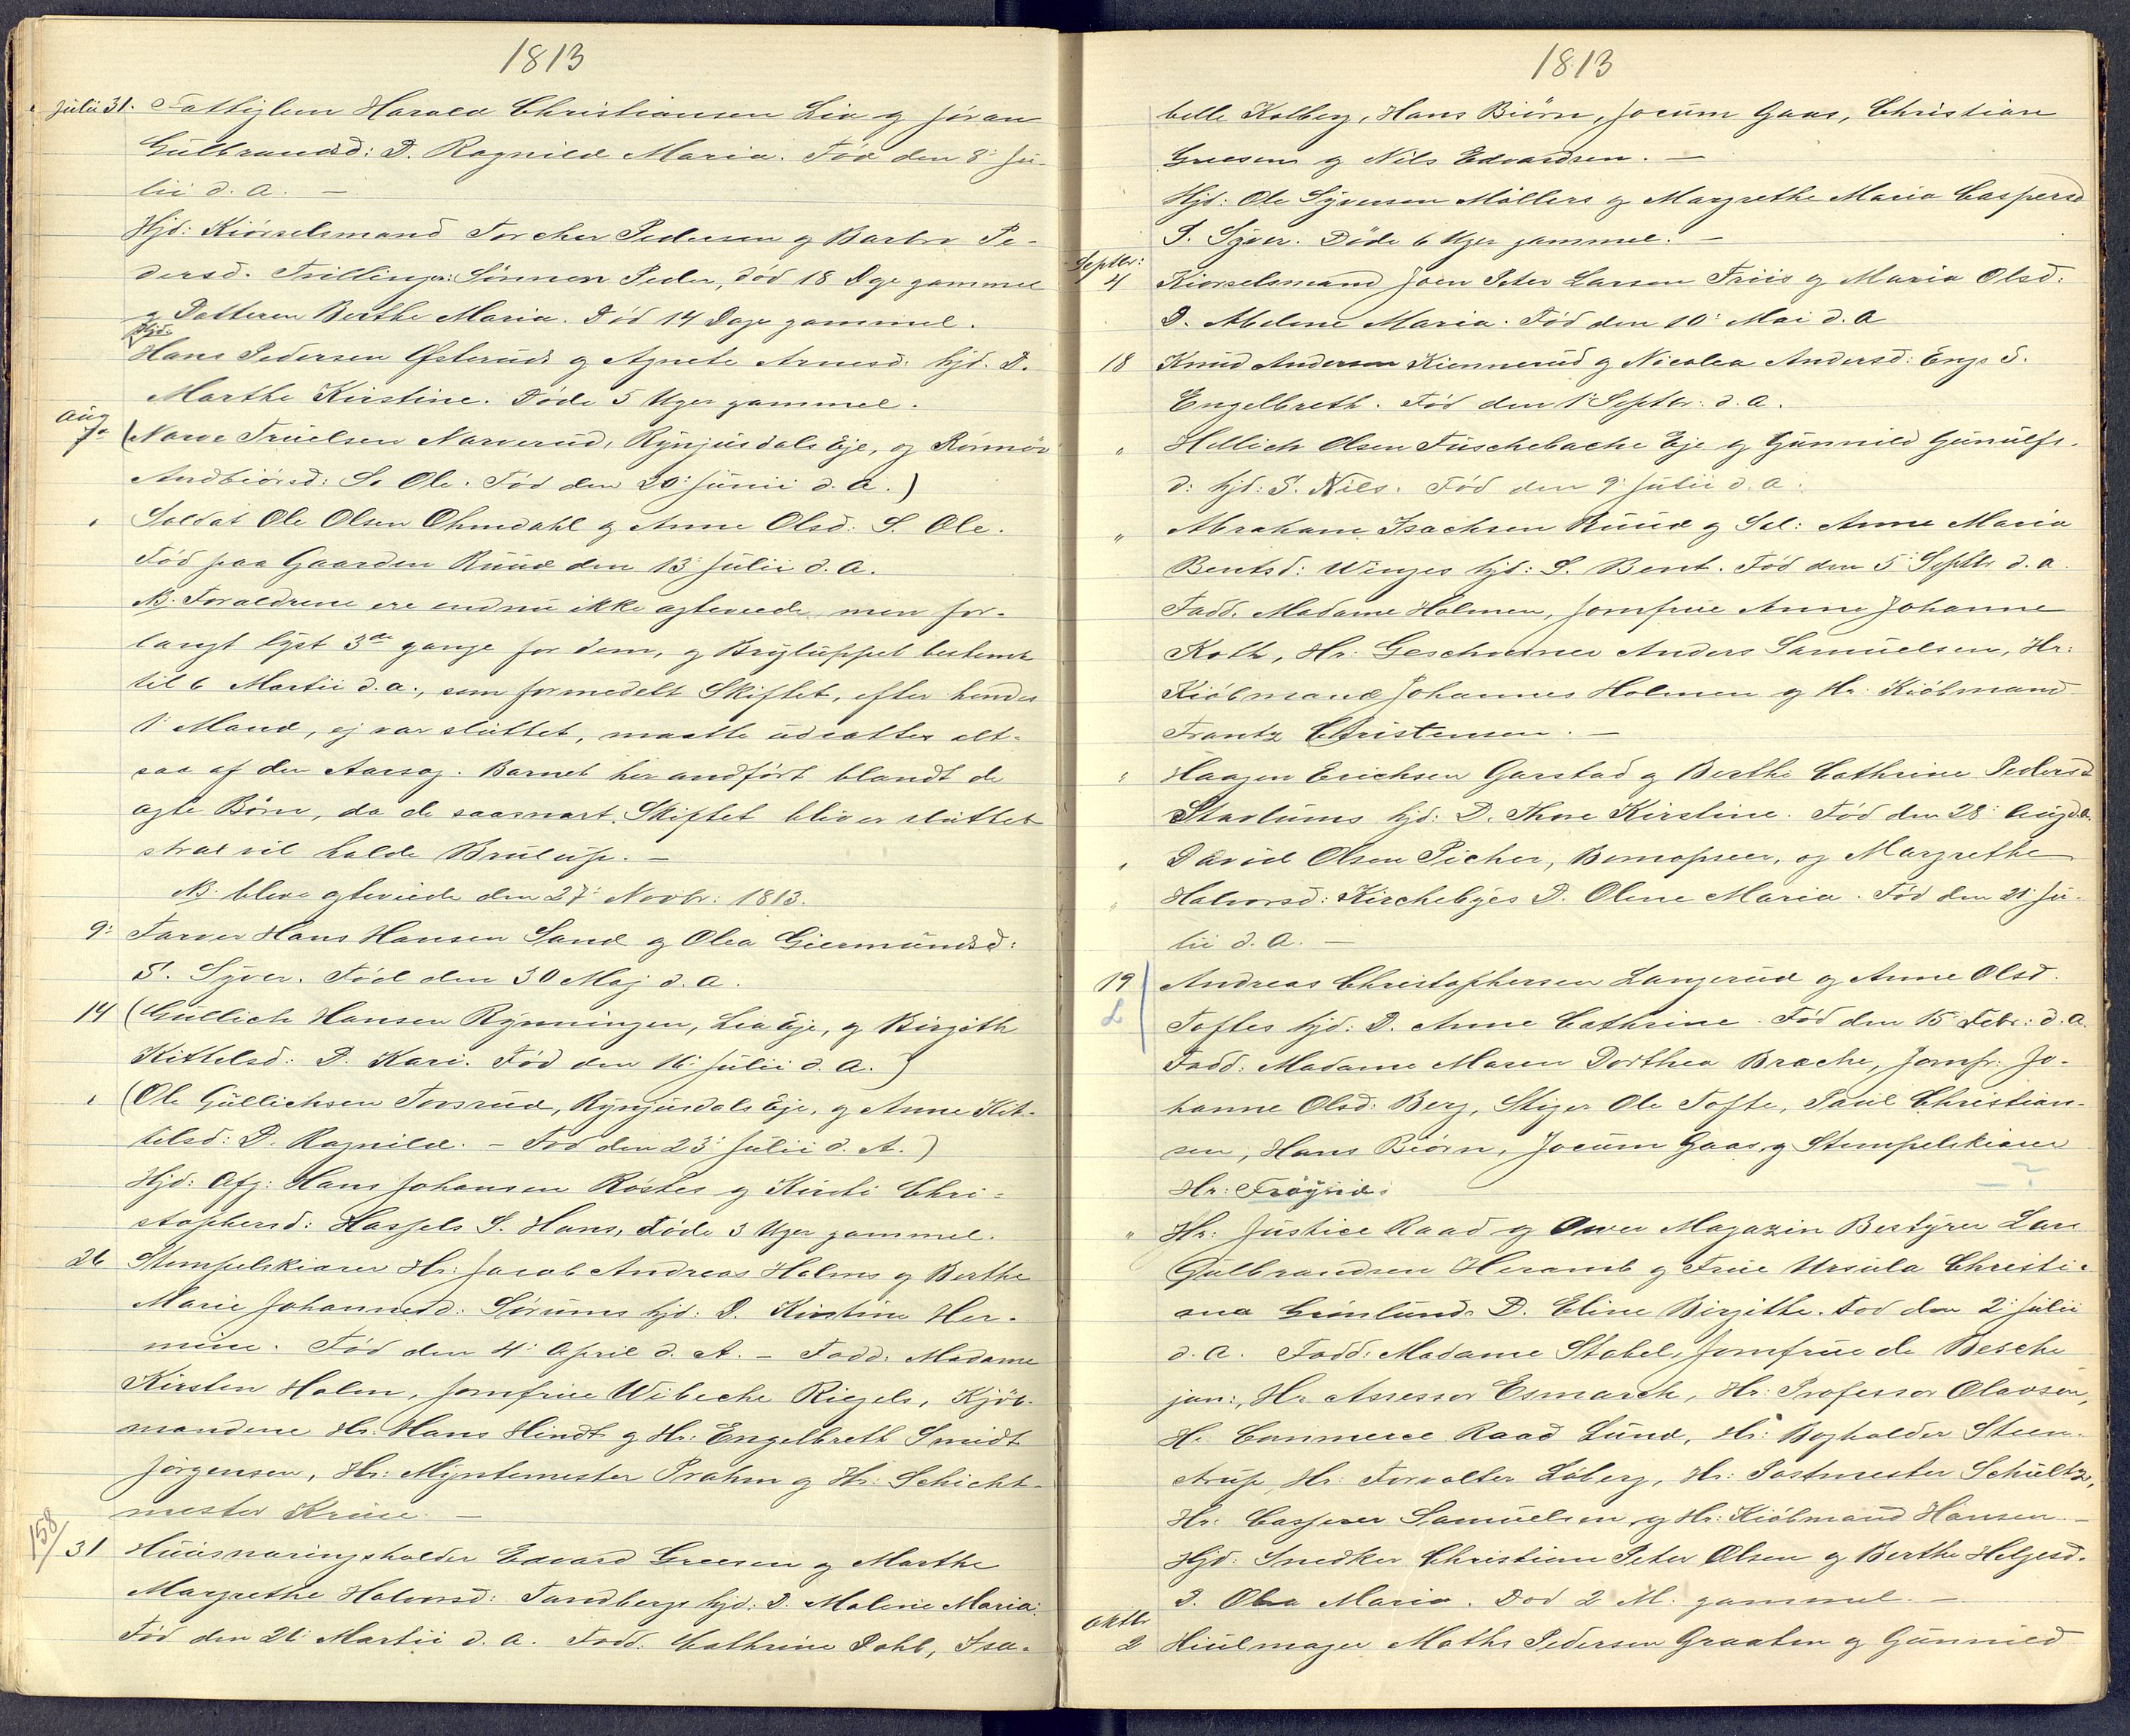 1813
Julii 31. Fattiglem Harald Christiansen Lia og Jöran
Gulbrandsd: D. Ragnild Maria. Fød den 8: Ju-
lii d. a. —
Hjd: Kiörselsmand Torcher Pedersen og Barbro Pe-
dersd. Trillinger: Sönnen Peder, död 18 Dage gammel
og Datteren Berthe Maria. Død 14 Dage gammel.
Hjd.
Hans Pedersen Østeruds og Agnete Arnesd: hjd. D.
Marthe Kirstine. Døde 5 Uger gammel.
Aug
7de (Narve Truelsen Narverud, Rynjusdals Eje, og Rönnöv
Andbiörsd: S. Ole. Fød den 20: Junii d. a.)
" Soldat Ole Olsen Ohmdahl og Anne Olsd: S. Ole.
Fød paa Gaarden Ruud den 13: Julii d. a.
NB. Forældrene ere endnu ikke agteviede, men for-
langt lyst 3de gange for dem, og Brylluppet bestemt
til 6 Martii d. a., som formedelt Skiftet, efter hendes
1: Mand, ej var sluttet, maatte udsættes alt-
saa af den Aarsag. Barnet her andført blandt de
ægte Børn, da de saasnart Skiftet bliver sluttet
strax vil holde Brülup. —
NB. bleve agteviede den 27: Novbr: 1813.
9: Farver Hans Hansen Sand og Olea Giermundsd:
S. Syver. Född den 30 Maj d. a.
14 (Gullich Hansen Rynningen, Lia Eje, og Birgith
Kittelsd: D. Kari. Fød den 16: Julii d. a.)
" (Ole Gullichsen Torsrud, Rynjusdals Eje, og Anne Kit-
telsd: D. Ragnild. – Fød den 23: Julii d. A.)
Hjd: Afg: Hans Johansen Røstes og Kirsti Chri-
stophersd: Haspels S. Hans, Døde 3 Uger gammel.
26 Stempelskiærer Hr: Jacob Andreas Holms og Berthe
Marie Johannesd: Sørums hjd: D. Kirstine Her-
mine. Fød den 4: April d. A. – Fadd: Madame
Kirsten Holm, Jomfrue Wibeche Riegels, Kjöb-
mændene Hr: Hans Hindt og Hr: Engelbreth Smidt
Jørgensen, Hr: Myntemester Prahm og Hr: Schicht-
mester Kruse. —
158/
31 Huusnæringsholder Edvard Greesen og Marthe
Margrethe Halvorsd: Sandbergs hjd: D. Malene Maria.
Fød den 26: Martii d. a. Fadd: Cathrine Dahl, Isa-
1813
belle Kolberg, Hans Biörn, Jocum Gaas, Christian
Greesen og Nils Edvardsen. —
Hjd: Ole Syversen Møllers og Margrethe Maria Caspersd
S. Syver. Døde 6 Uger gammel. —
Septbr:
4 Kiörselsmand Joen Peter Larsen Friis og Maria Olsd:
D. Abelone Maria. Fød den 10: Mai d. a
18 Knud Andersen Kiennerud og Nicolea Andersd: Engs S.
Engelbreth. Fød den 1: Septbr: d. a.
" Hellich Olsen Fuschebache Eje og Gunnild Gunulfs-
d: hjd: S. Niels. Fød den 9: Julii d. a.
" Abraham Isachsen Ruud og Sal: Anne Maria
Bentsd: Winges hjd: S. Bent. Fød den 5: Septbr d. a.
Fadd. Madame Holmen, Jomfrue Anne Johanne
Koth, Hr: Geschworner Anders Samuelsen, Hr:
Kiöbmand Johannes Holmen og Hr: Kiöbmand
Frantz Christensen. —
" Haagen Erichsen Garstad og Berthe Cathrine Pedersd
Stavlums hjd: D. Thore Kirstine. Fød den 28: Aug d. a.
" David Olsen Picher, Bomopseer, og Margrethe
" Halvorsd: Kirchebyes D. Olene Maria. Fød den 21: Ju-
lii d. a. —
19 Andreas Christophersen Langerud og Anne Olsd.
Toftes hjd: D. Anne Cathrine. Fød den 15 Febr: d. a.
Fadd: Madame Maren Dorthea Brache, Jomfr: Jo-
hanne Olsd: Berg, Stiger Ole Tofte, Paul Christian-
sen, Hans Biörn, Jocum Gaas, og Stempelskiærer
Hr: Frøyrid. — ?
" Hr: Justice Raad og Over Magazin Bestyrer Lars
Gulbrandsen Heramb og Frue Ursula Christi-
ana Grönlunds D. Eline Birgithe. Fød den 2: Julii
d. a. Fadd: Madame Stabel, Jomfrue de Besche
jun:, Hr. Assessor Esmarch, Hr: Professor Olavsen,
Hr: Commerce Raad Lund, Hr: Bogholder Steen-
strup, Hr: Forvalter Löberg, Hr: Postmester Schultz,
Hr: Casserer Samuelsen, og Hr: Kiöbmand Hansen. —
Hjd: Snedker Christian Peter Olsen og Berthe Helgesd.
D. Olea Maria. Død 2 M: gammel. —
Oktbr
2 Hiulmager Mathis Pedersen Graaten og Gunnild